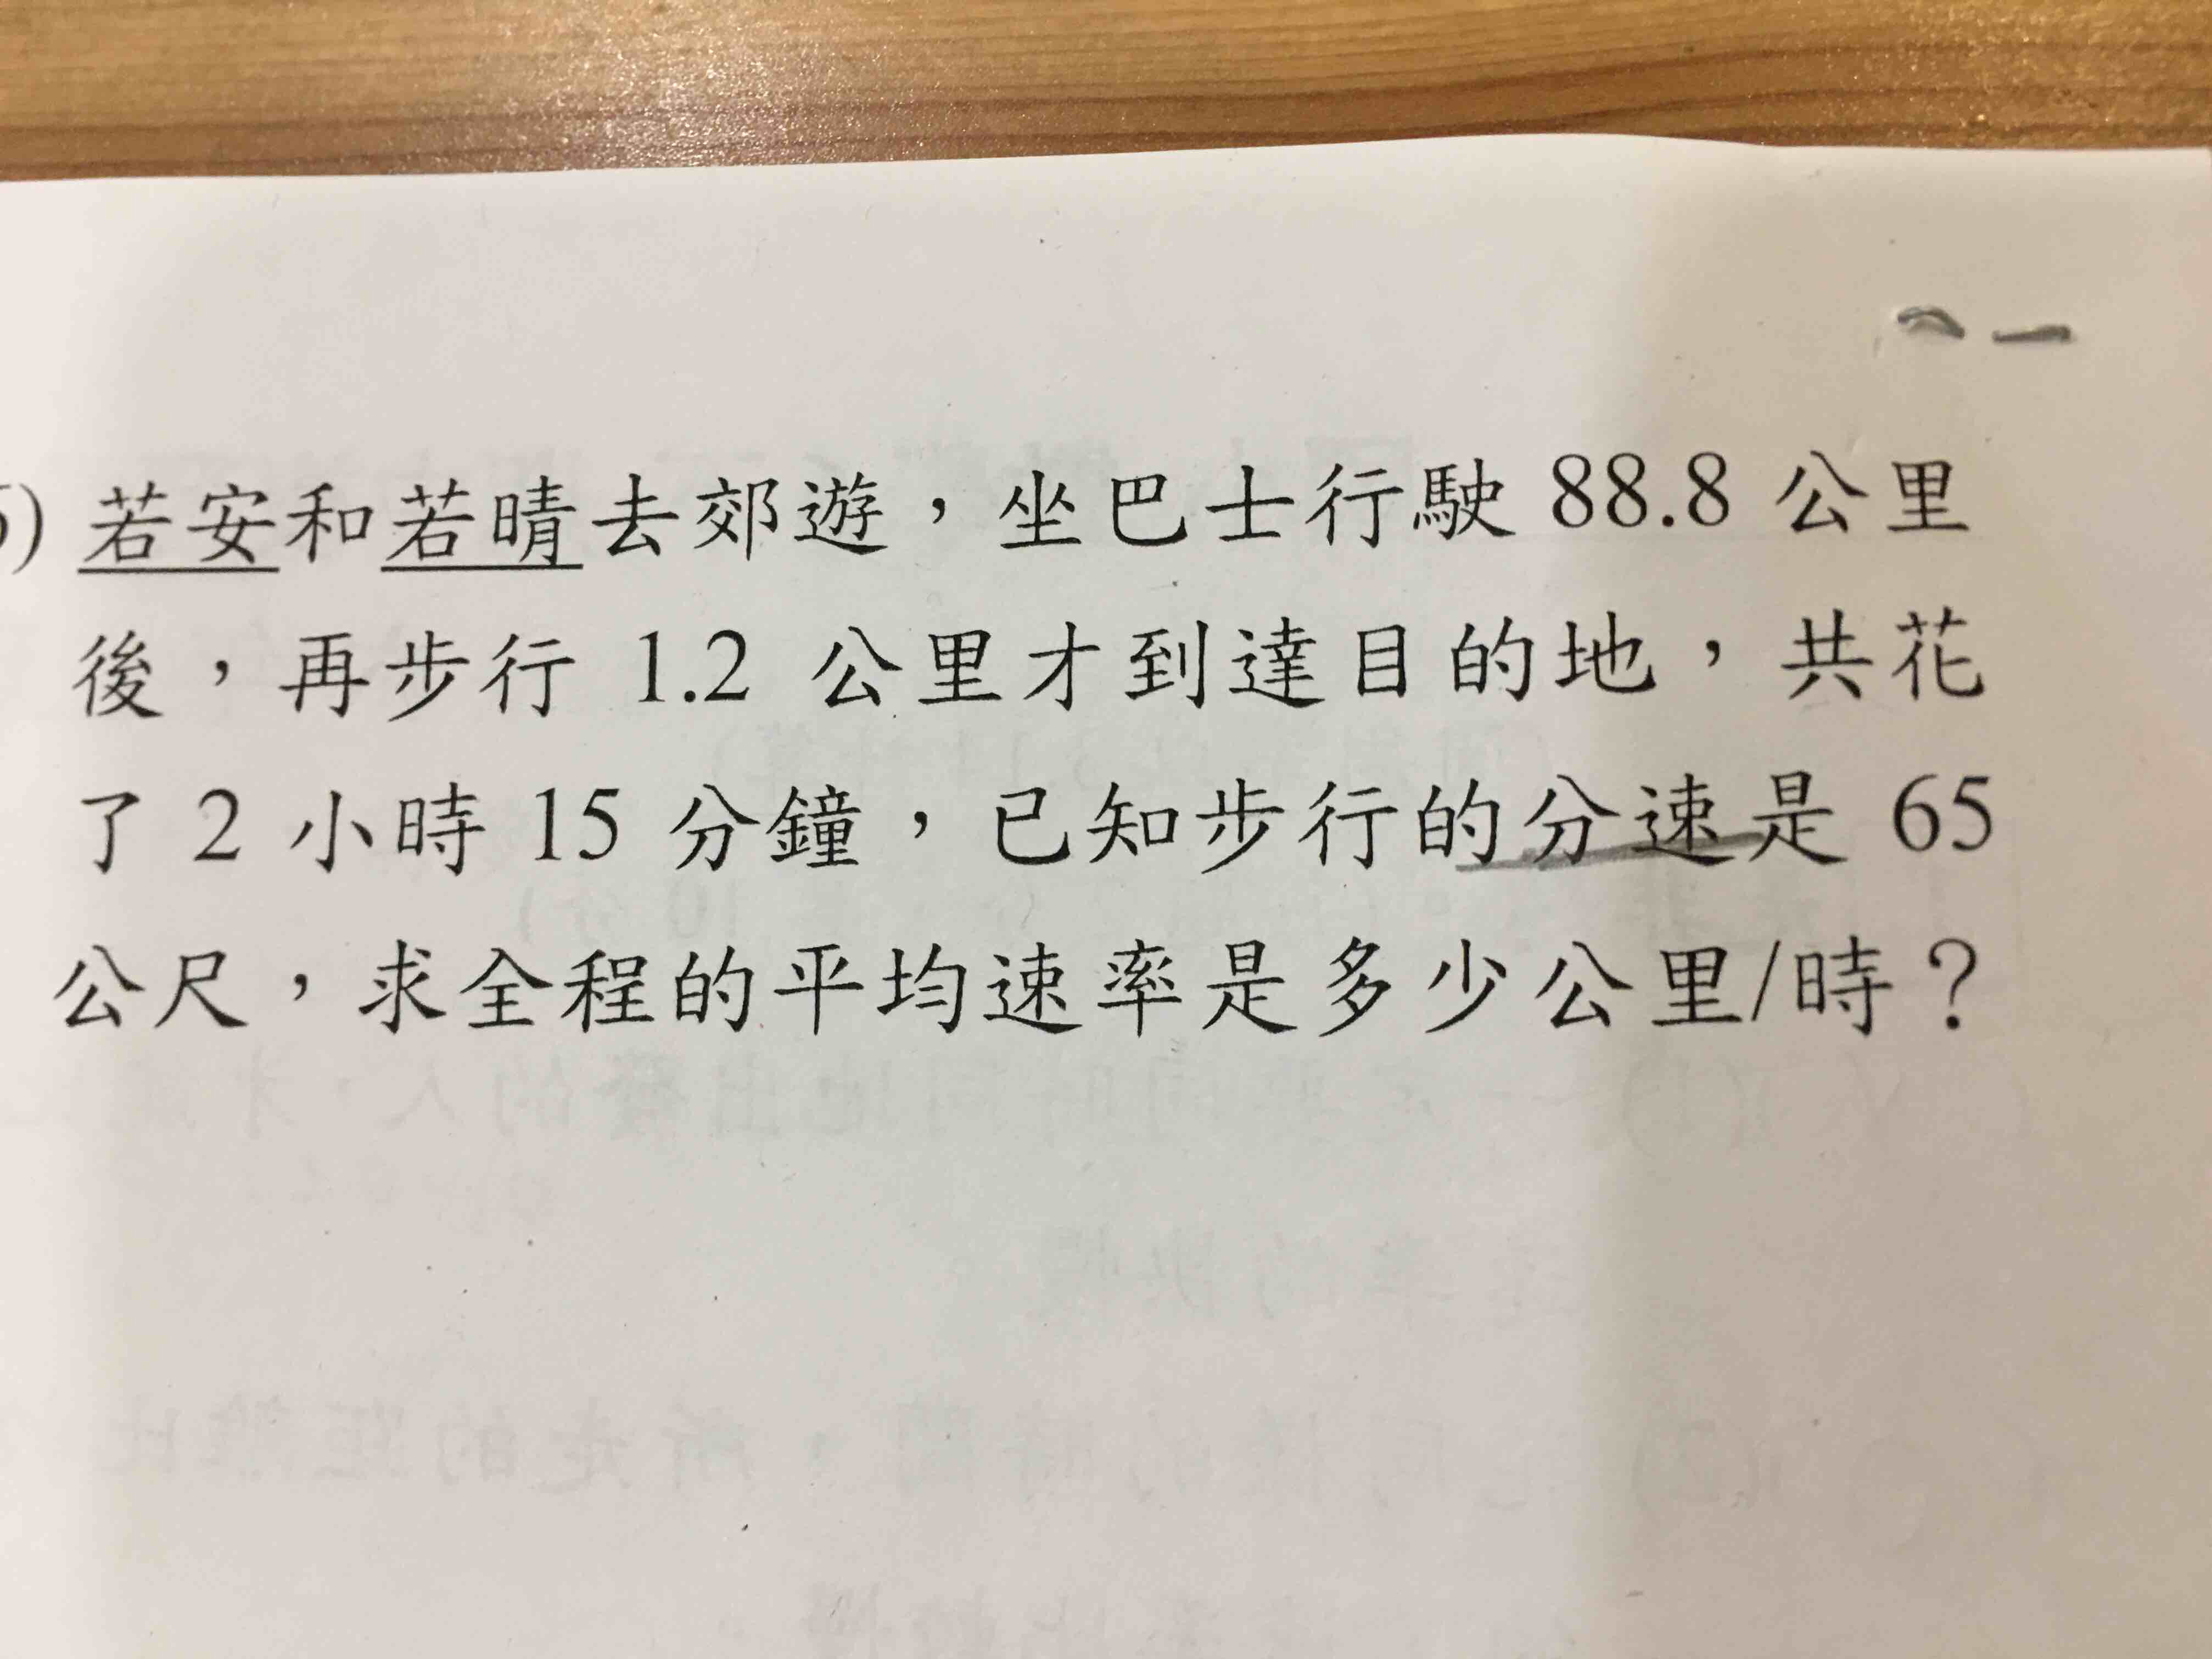 5) 若安和若晴去郊遊，坐巴士行駛 88.8 公里
後，再步行 1.2 公里才到達目的地，共花
了 2 小時 15 分鐘，已知步行的分速是 65
公尺，求全程的平均速率是多少公里/時？